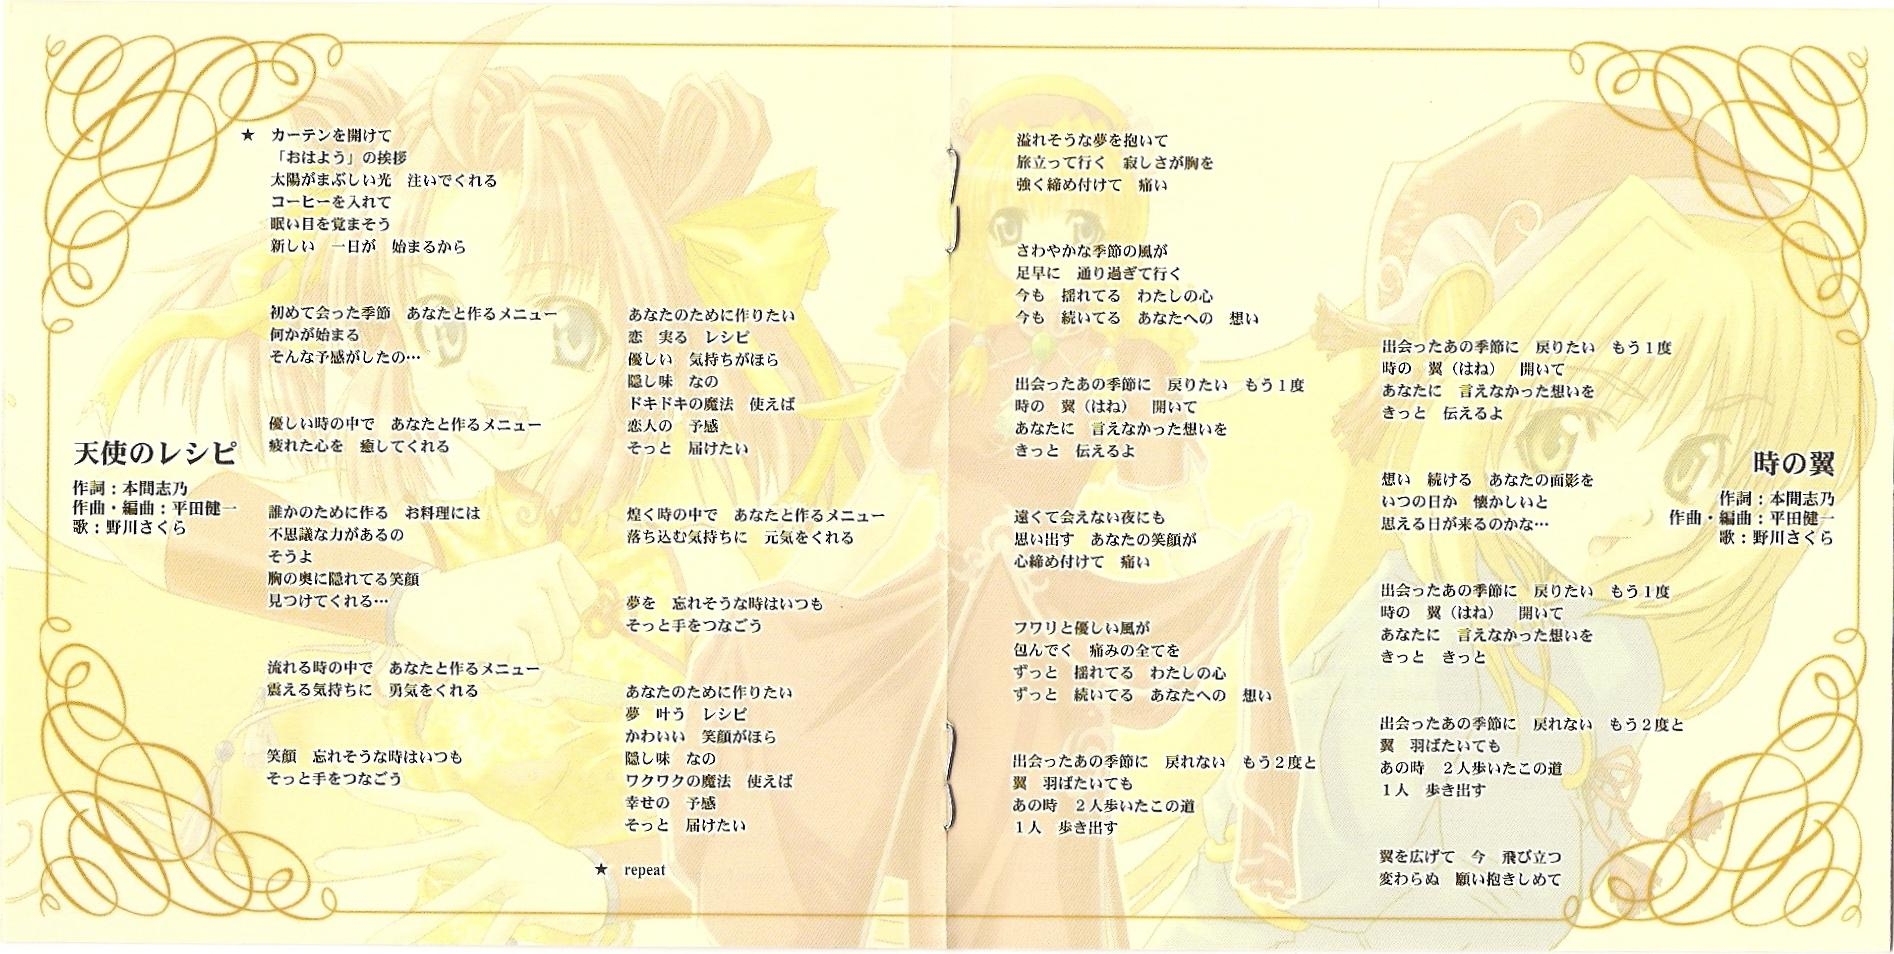 天使のレシピ
作詞：本間志乃
作曲・編曲：平田健一
歌：野川さくら
★　カーテンを開けて
「おはよう」の挨拶
太陽がまぶしい光　注いでくれる
コーヒーを入れて
眠い目を覚まそう
新しい　一日が　始まるから
初めて会った季節　あなたと作るメニュー
何かが始まる
そんな予感がしたの…
優しい時の中で　あなたと作るメニュー
疲れた心を　癒してくれる
誰かのために作る　お料理には
不思議な力があるの
そうよ
胸の奥に隠れてる笑顔
見つけてくれる…
流れる時の中で　あなたと作るメニュー
震える気持ちに　勇気をくれる
笑顔　忘れそうな時はいつも
そっと手をつなごう
あなたのために作りたい
恋　実る　レシピ
優しい　気持ちがほら
隠し味　なの
ドキドキの魔法　使えば
恋人の　予感
そっと　届けたい
煌く時の中で　あなたと作るメニュー
落ち込む気持ちに　元気をくれる
夢を　忘れそうな時はいつも
そっと手をつなごう
あなたのために作りたい
夢　叶う　レシピ
かわいい　笑顔がほら
隠し味　なの
ワクワクの魔法　使えば
幸せの　予感
そっと　届けたい
★　repeat
時の翼
作詞：本間志乃
作曲・編曲：平田健一
歌：野川さくら
溢れそうな夢を抱いて
旅立って行く　寂しさが胸を
強く締め付けて　痛い
さわやかな季節の風が
足早に　通り過ぎて行く
今も　揺れてる　わたしの心
今も　続いてる　あなたへの　想い
出会ったあの季節に　戻りたい　もう１度
時の　翼（はね）　開いて
あなたに　言えなかった想いを
きっと　伝えるよ
遠くて会えない夜にも
思い出す　あなたの笑顔が
心締め付けて　痛い
フワリと優しい風が
包んでく　痛みの全てを
ずっと　揺れてる　わたしの心
ずっと　続いてる　あなたへの　想い
出会ったあの季節に　戻れない　もう２度と
翼　羽ばたいても
あの時　２人歩いたこの道
１人　歩き出す
出会ったあの季節に　戻りたい　もう１度
時の　翼（はね）　開いて
あなたに　言えなかった想いを
きっと　伝えるよ
想い　続ける　あなたの面影を
いつの日か　懐かしいと
思える日が来るのかな…
出会ったあの季節に　戻りたい　もう１度
時の　翼（はね）　開いて
あなたに　言えなかった想いを
きっと　きっと
出会ったあの季節に　戻れない　もう２度と
翼　羽ばたいても
あの時　２人歩いたこの道
１人　歩き出す
翼を広げて　今　飛び立つ
変わらぬ　願い抱きしめて